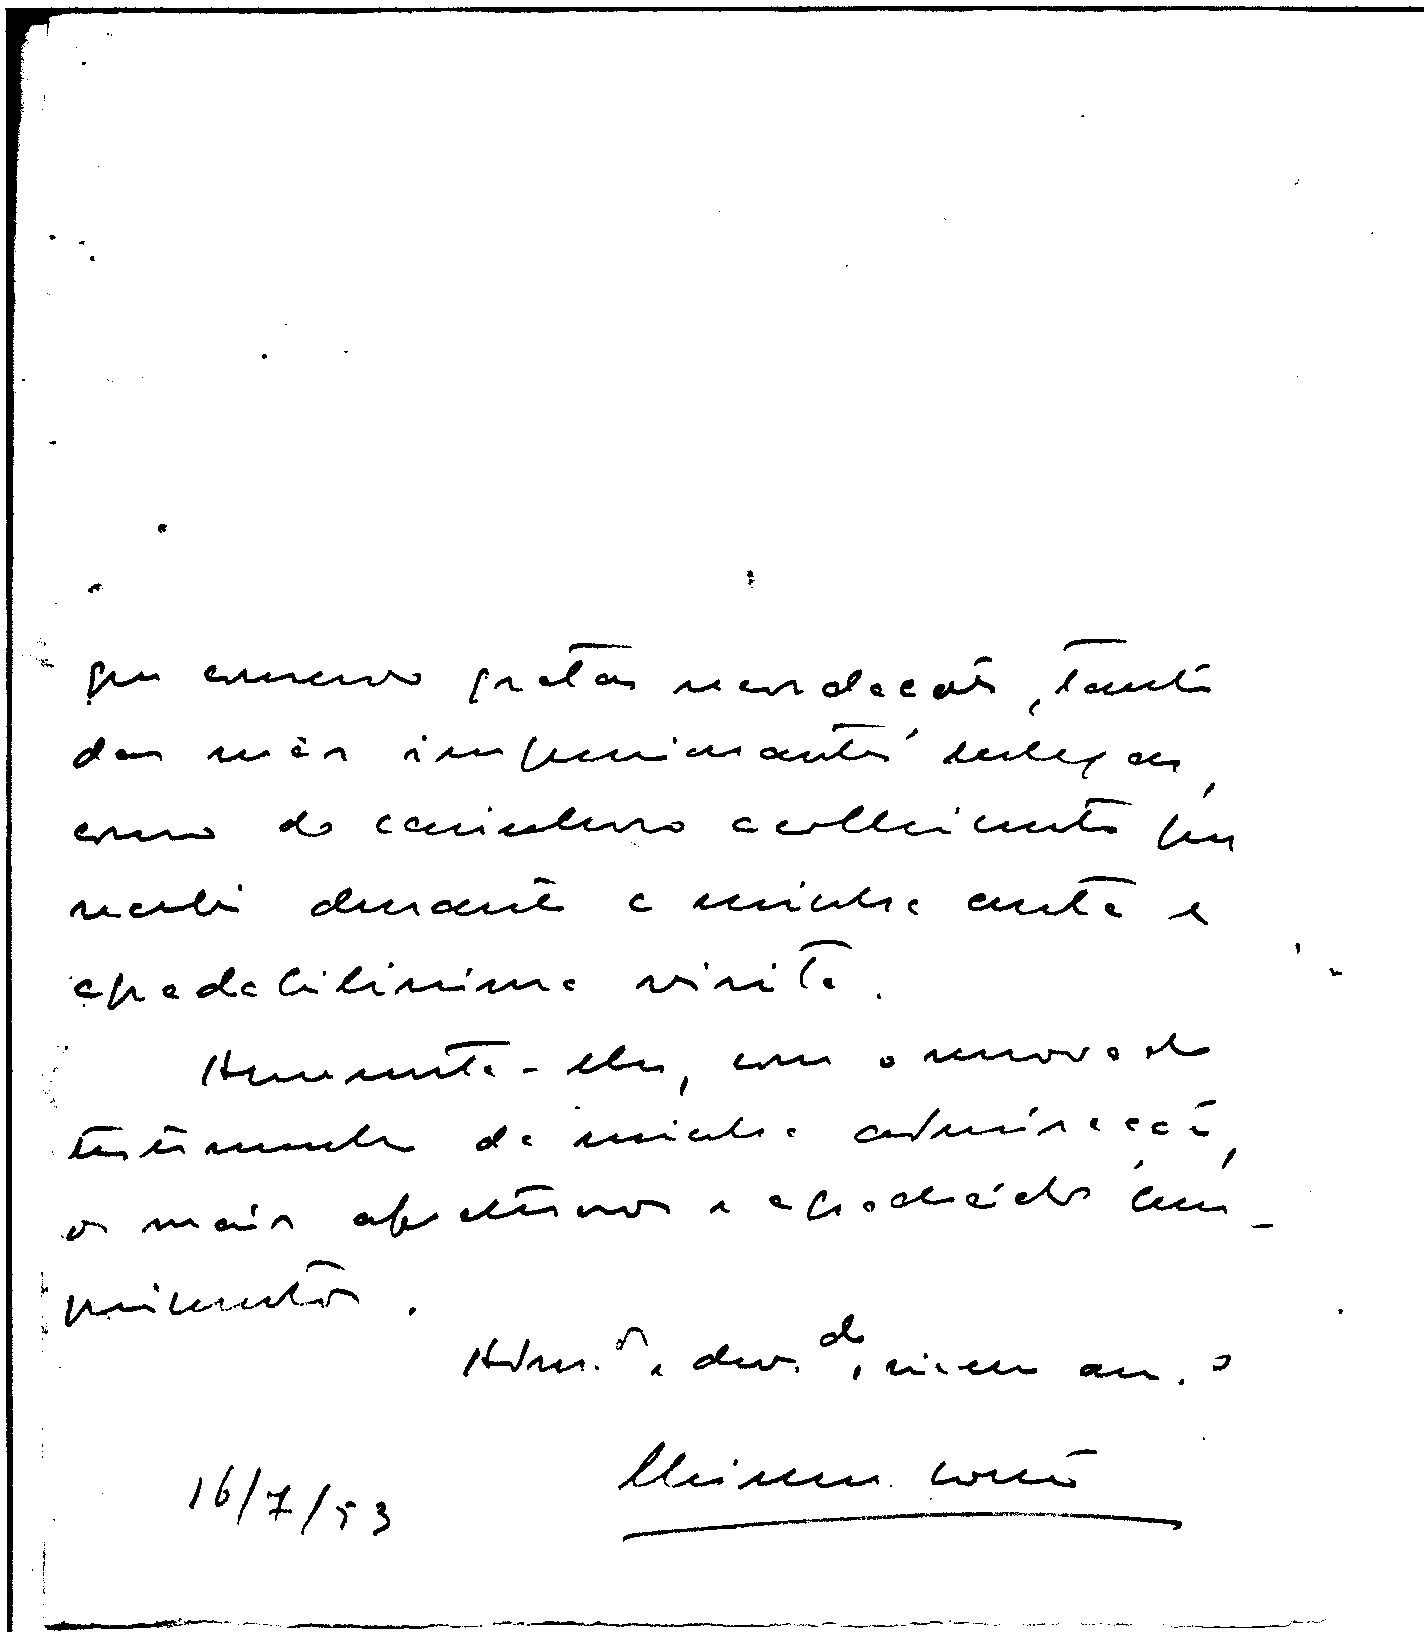 que conservo gratas recordações, tanto
das mais impressionantes
como do carinhoso acolhimento que
recebi durante a minha curta e
agradabilíssima visita.
Apresenta-lhe, com o renovado
testemunho da minha admiração,
os mais afectuosos e agradecidos cum-
primentos.
Adm.or e dev.do, am.o
16/7/53